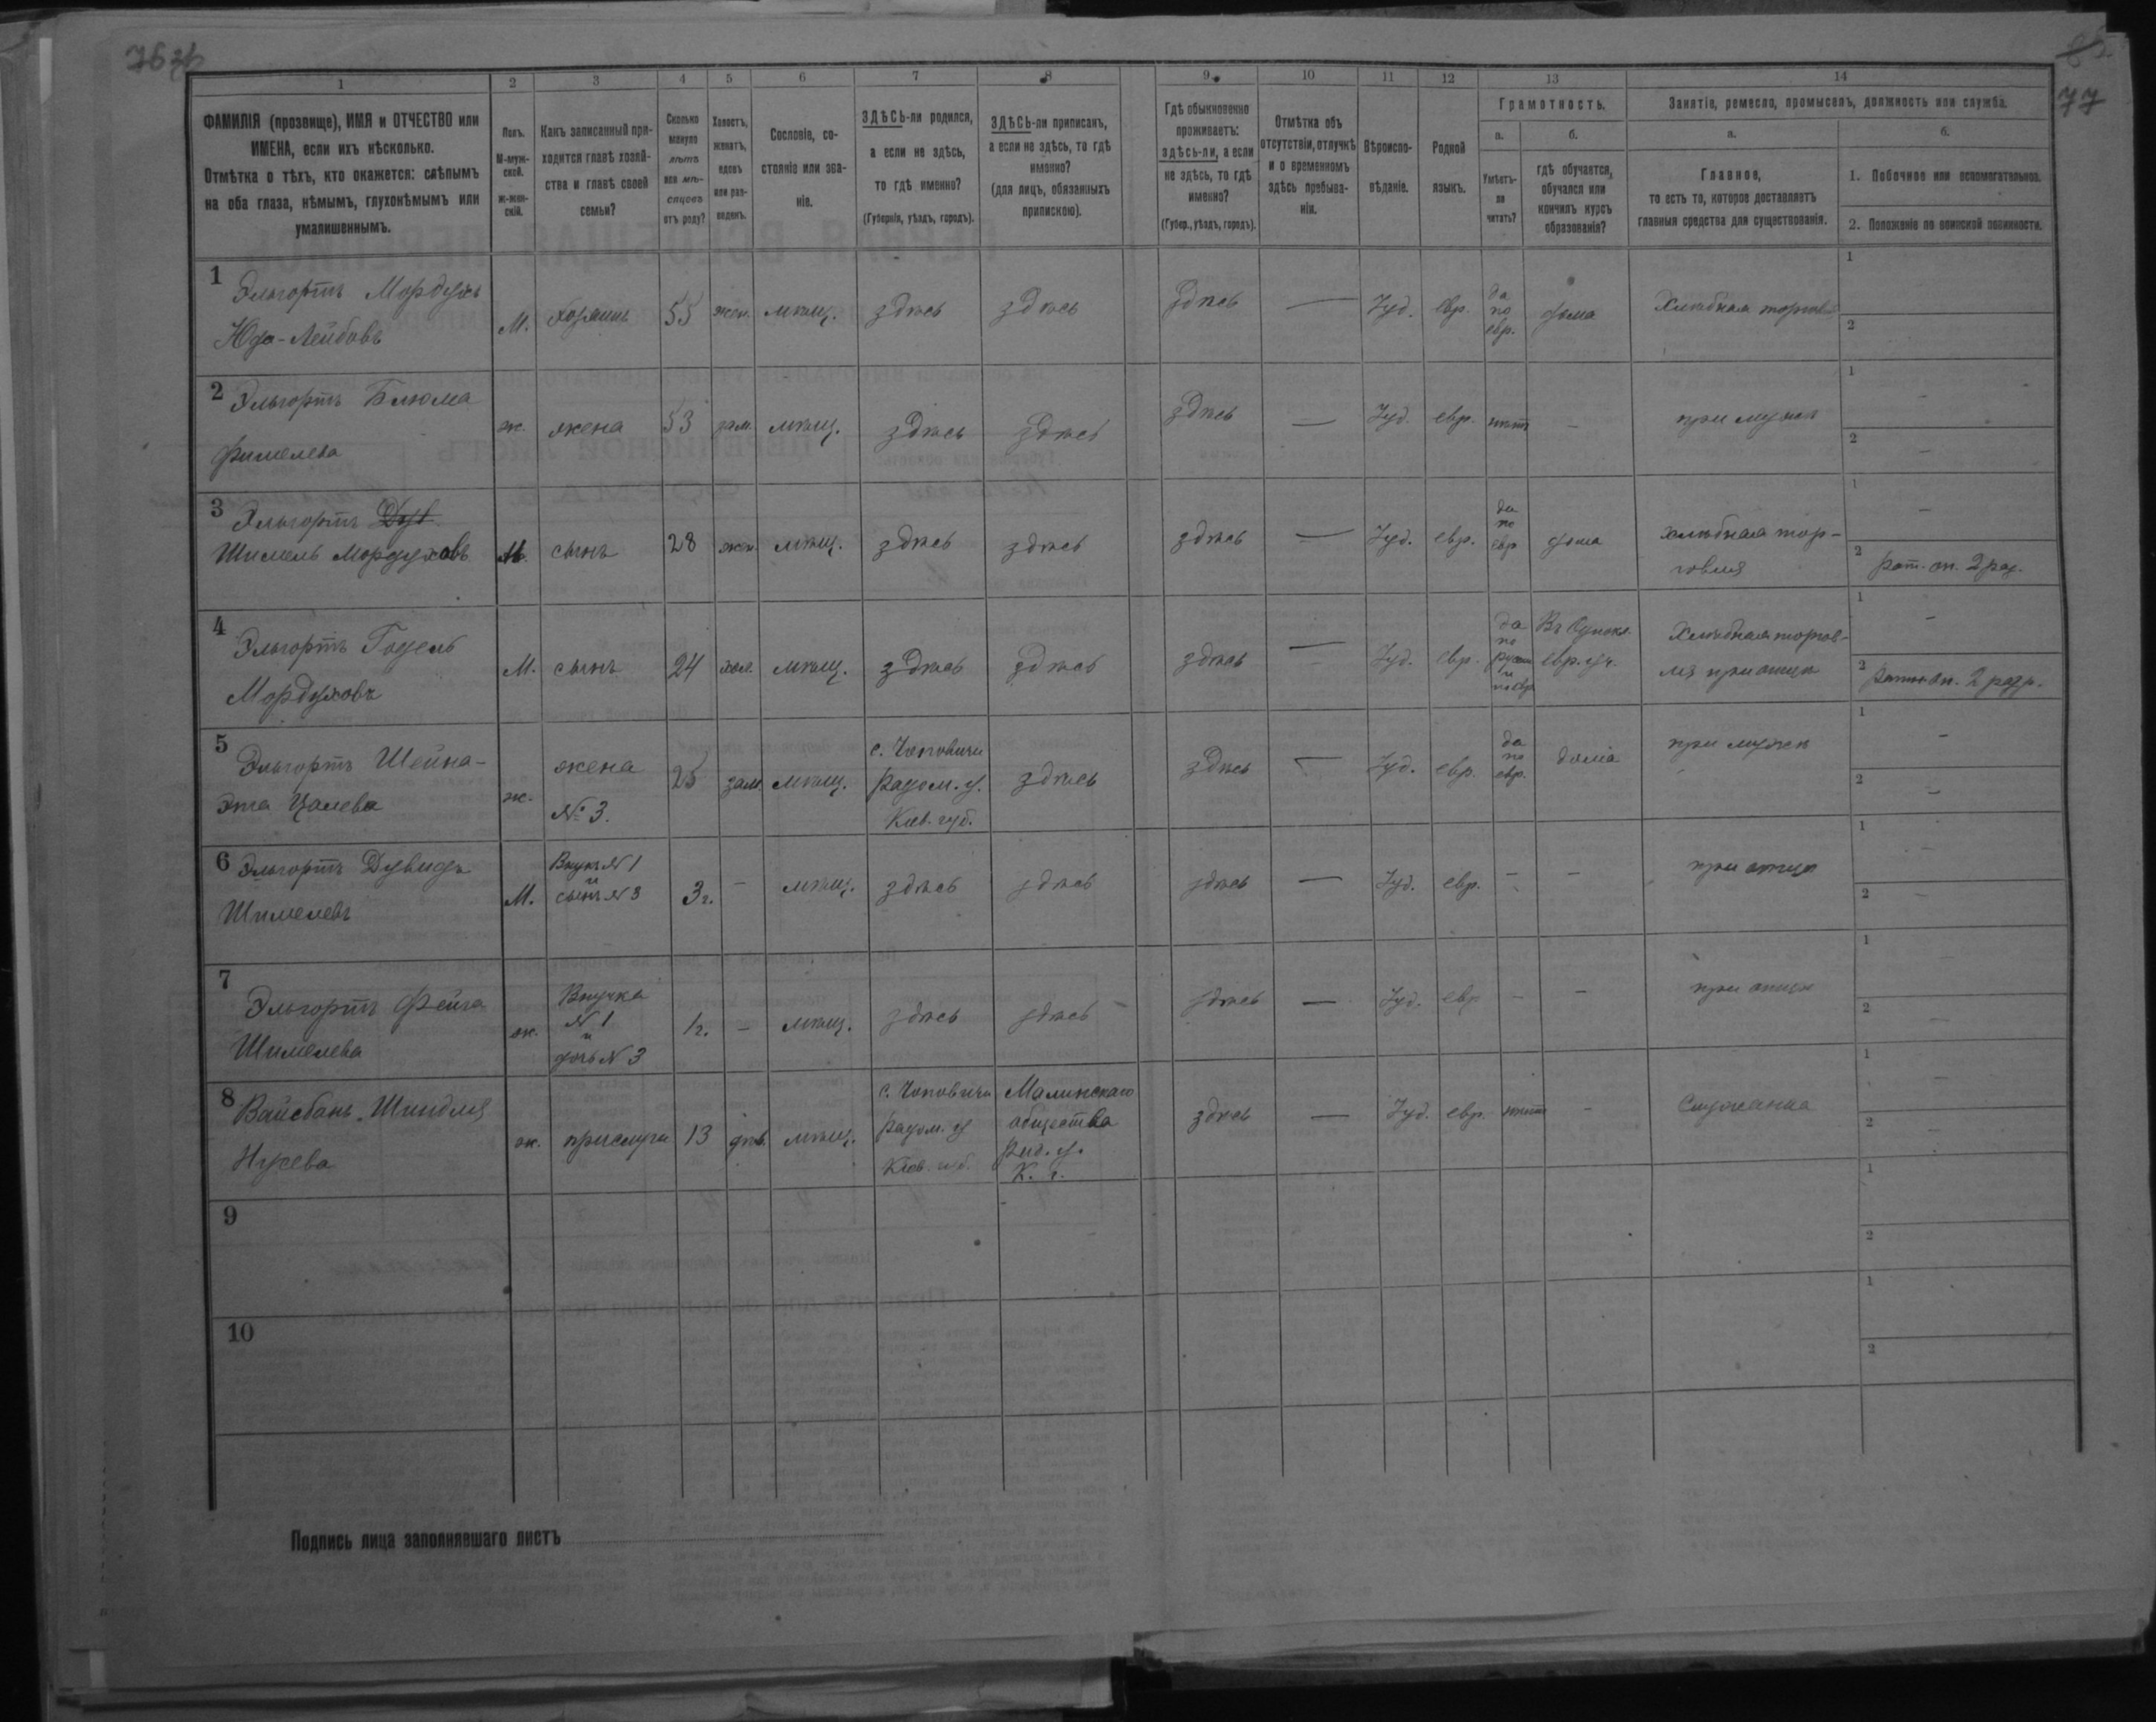 76 зв
65
77
1
2
3
4
5
6
7
8
9
10
11
12
13
14
ФАМИЛІЯ (прозвище), ИМЯ и ОТЧЕСТВО или
ИМЕНА, если ихъ нѣсколько.
Отмѣтка о тѣхъ, кто окажется: слѣпымъ
на оба глаза, нѣмымъ, глухонѣмымъ или
умалишеннымъ.
Полъ.
М-муж-
ской.
ж-жен-
скій.
Какъ записанный при-
ходится главѣ хозяй-
ства и главѣ своей
семьи?
Сколько
минуло
лѣтъ
или мѣ-
сяцовъ
отъ роду?
Холостъ,
женатъ,
вдовъ
или раз-
веденъ.
Сословіе, со-
стояніе или зва-
ніе.
ЗДѢСЬ-ли родился,
а если не здѣсь,
то гдѣ именно?
(Губернія, уѣздъ, городъ).
ЗДѢСЬ-ли приписанъ,
а если не здѣсь, то гдѣ
именно?
(для лицъ, обязанныхъ
припискою).
Гдѣ обыкновенно
проживаетъ:
здѣсь-ли, а если
не здѣсь, то гдѣ
именно?
(Губер., уѣздъ, городъ).
Отмѣтка объ
отсутствіи, отлучкѣ
и о временномъ
здѣсь пребыва-
ніи.
Вѣроиспо-
вѣданіе.
Родной
языкъ.
Грамотность.
а.
б.
Умѣетъ-
ли
читать?
гдѣ обучается,
обучался или
кончилъ курсъ
образованія?
Занятіе, ремесло, промыселъ, должность или служба.
а.
б.
Главное,
то есть то, которое доставляетъ
главныя средства для существованія.
1. Побочное или вспомогательное.
2. Положеніе по воинской повинности.
1
Эльгортъ Мордухъ
Юдо-Лейбовъ
М.
хозяинъ
55
жен.
мѣщ.
здѣсь
здѣсь
здѣсь
—
Іуд.
евр.
да
по
евр.
дома
Хлѣбная торговля
1
2
2
Эльгортъ Блюма
Фишелева
ж.
жена
53
зам.
мѣщ.
здѣсь
здѣсь
здѣсь
—
Іуд.
евр.
нѣтъ
—
при мужѣ
1
—
2
—
3
Эльгортъ
Шимель Мордуховъ
М.
сынъ
28
жен.
мѣщ.
здѣсь
здѣсь
здѣсь
—
Іуд.
евр.
да
по
евр
дома
хлѣбная тор-
говля
1
—
2
рат. оп. 2 раз.
4
Эльгортъ Годель
Мордуховъ
М.
сынъ
24
хол.
мѣщ.
здѣсь
здѣсь
здѣсь
—
Іуд.
евр.
да
по
русски
и
по евр
евр. уч.
Хлѣбная торгов-
ля при отцѣ
1
—
2
оп. 2 разр.
5
Эльгортъ Шейна-
Эта Цалева
ж.
жена
№ 3.
25
зам.
мѣщ.
с. Чоповичи
Радом. у.
Кіев. губ.
здѣсь
здѣсь
—
Іуд.
евр.
да
по
евр.
дома
при мужѣ
1
—
2
—
6
Эльгортъ Дувидъ
Шимелевъ
М.
Внукъ № 1
и
сынъ № 3
3 г.
—
мѣщ.
здѣсь
здѣсь
здѣсь
—
Іуд.
евр.
—
—
при отцѣ
1
—
2
—
7
Эльгортъ Фейга
Шимелева
ж.
Внучка
№ 1
и
дочь № 3
1 г.
—
мѣщ.
здѣсь
здѣсь
здѣсь
—
Іуд.
евр
—
—
при отцѣ
1
—
2
—
8
Вайсбанъ Шиндля
Нусева
ж.
прислуга
13
дѣв.
мѣщ.
с. Чоповичи
Радом. у
Кіев. губ.
Малинскаго
общества
Рад. у.
К. г.
здѣсь
—
Іуд.
евр.
нѣтъ
—
Служанка
1
—
2
—
9
1
2
10
1
2
Подпись лица заполнявшаго листъ